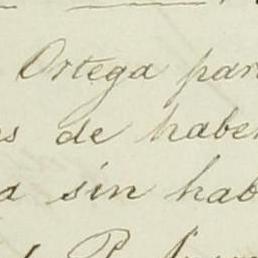 Ortega par
s de haber
a sin hab